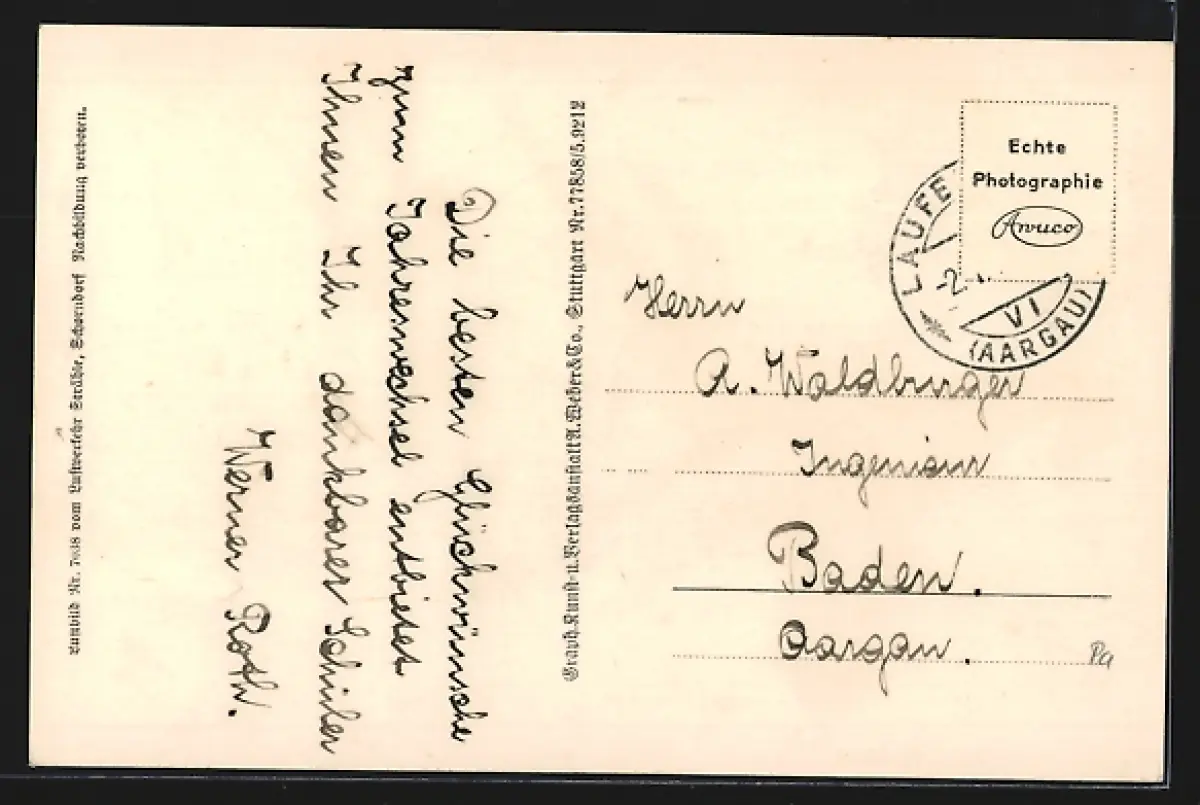 Die besten Glückwünsche
zum Jahreswechsel entbietet
Ihnen Ihr dankbarer Schüler
Werner Roth.
Luftbild Nr. 7038 vom Luftverkehr Strähle, Schorndorf Nachbildung verboten.
Graph. Kunst- u. Verlagsanstalt A. Weber & Co., Stuttgart Nr. 77858/5.9212
Echte
Photographie
Arvuco
LAUFE
-2.
VI
(AARGAU)
Herrn
A. Waldburger
Ingenieur
Baden.
Aargau.
Pa